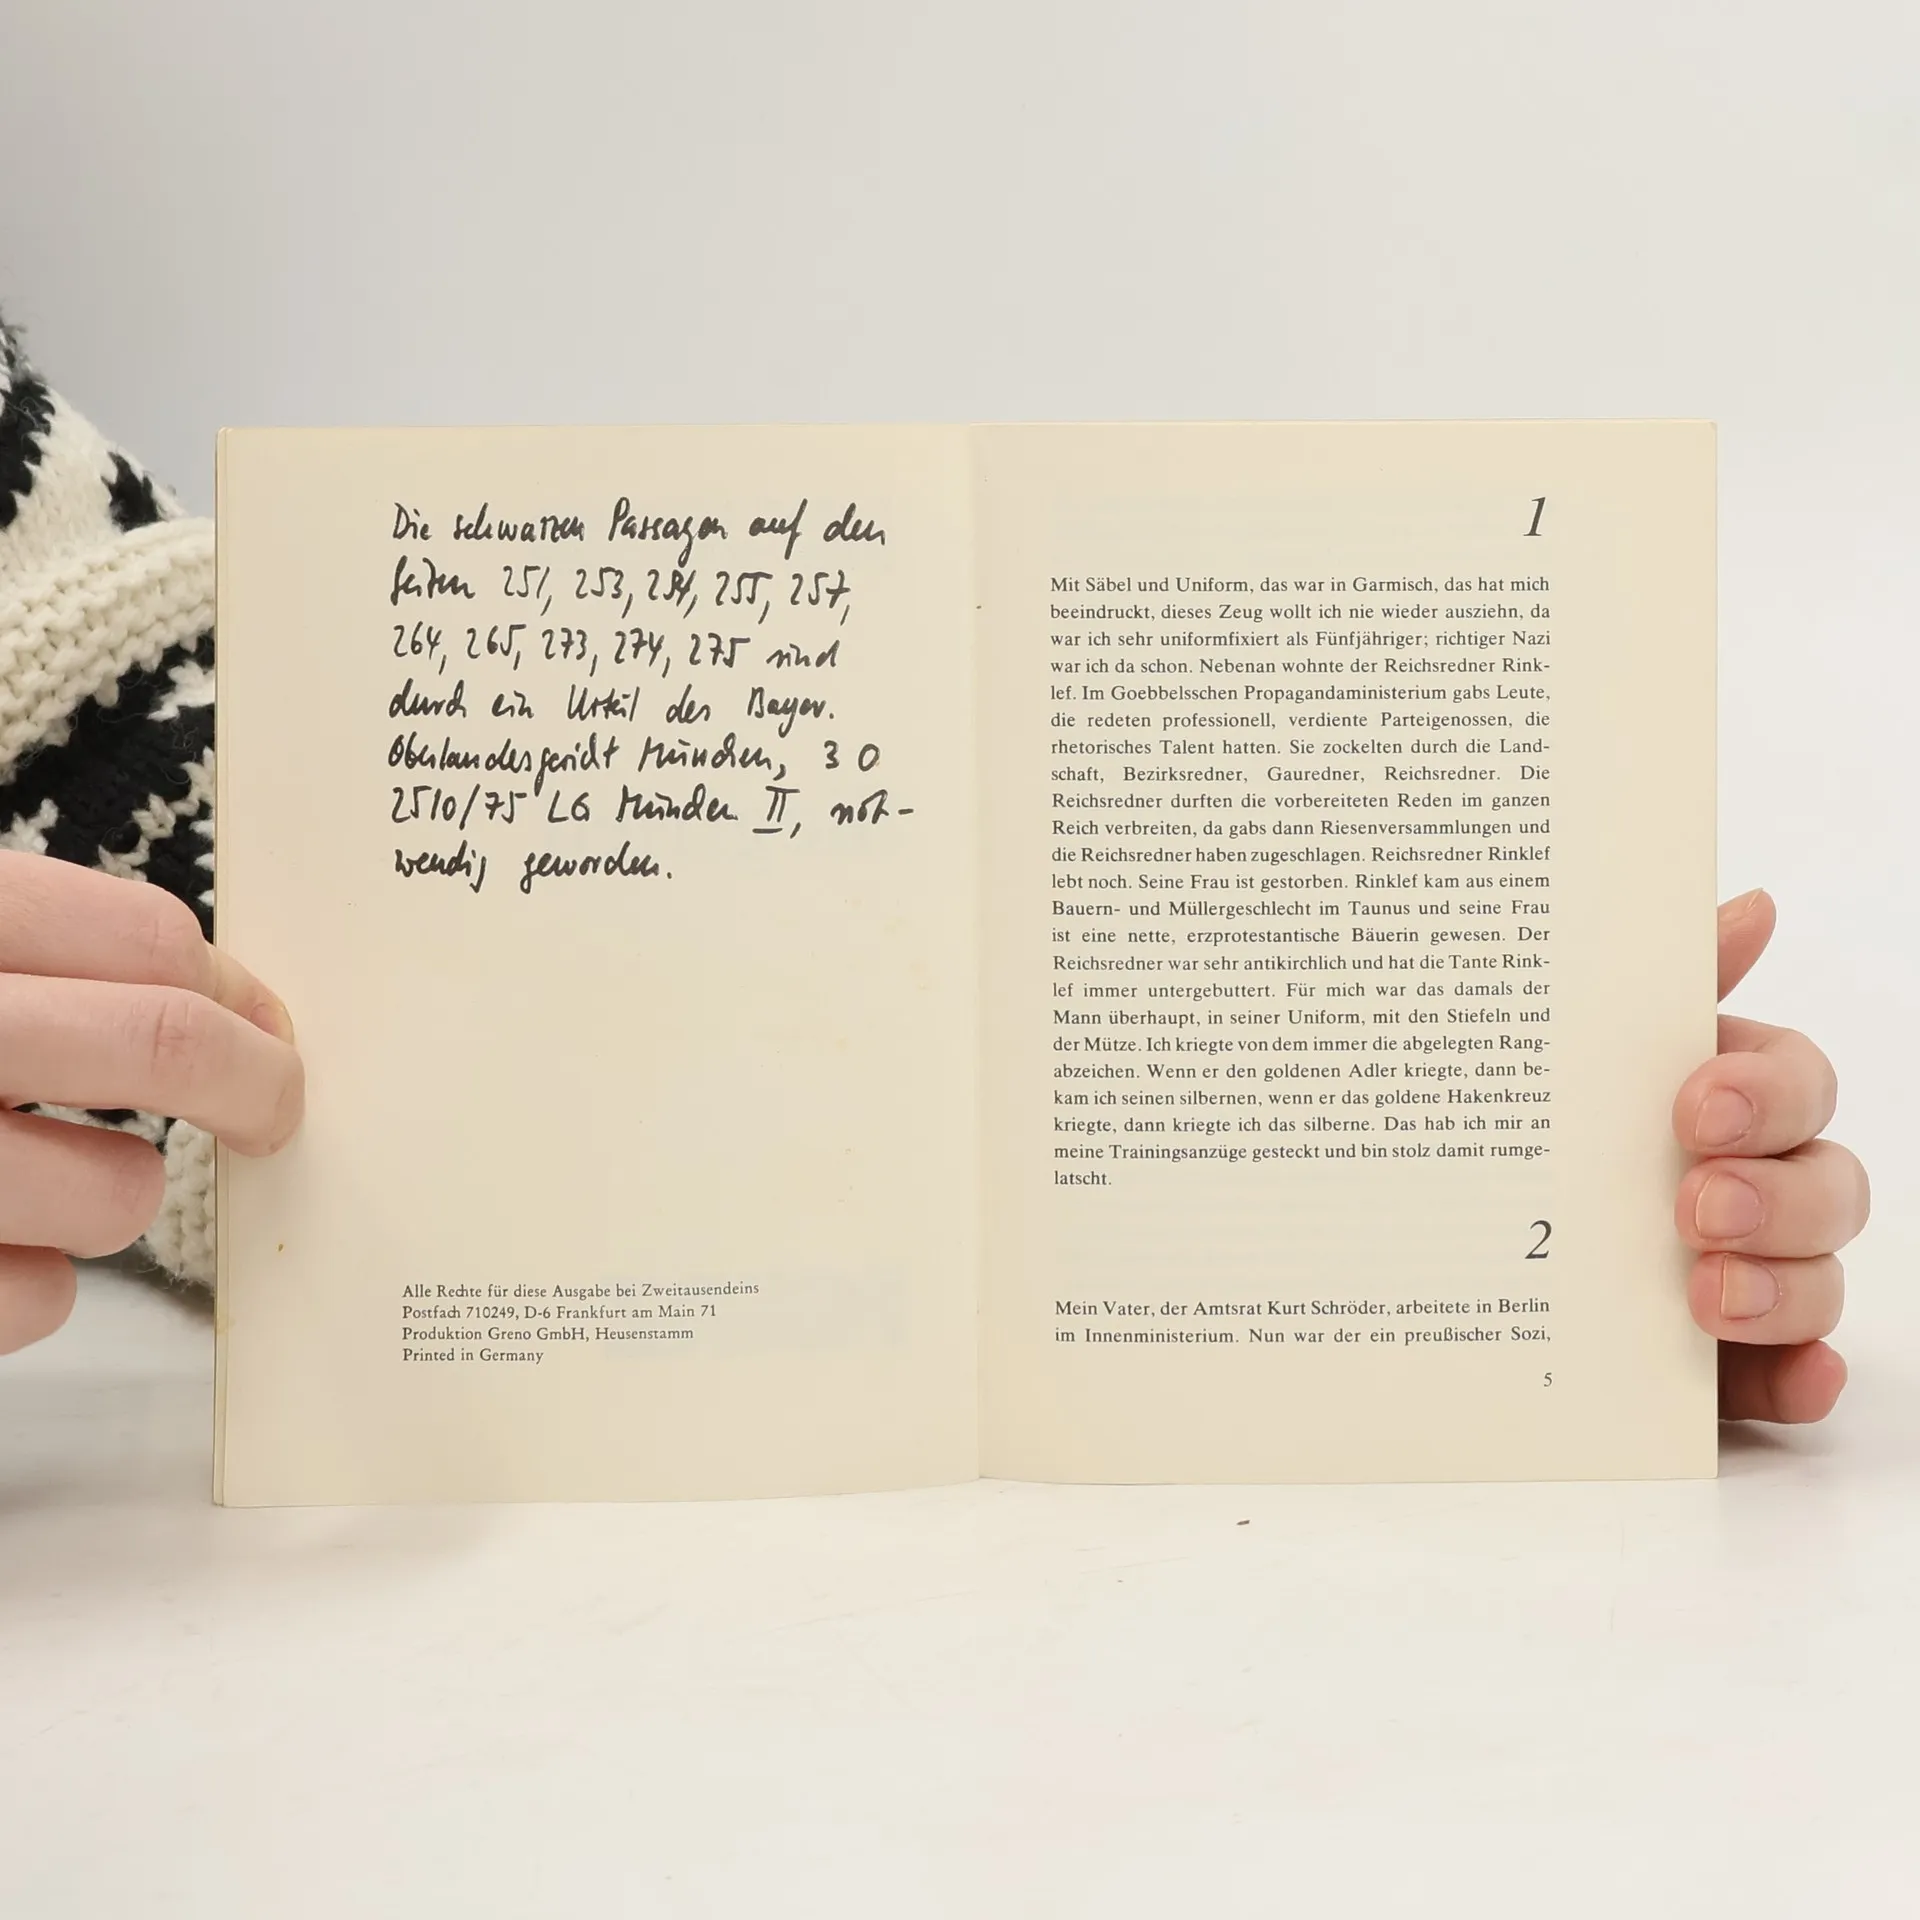 Die schwarzen Passagen auf den
Seiten 251, 253, 254, 255, 257,
264, 265, 273, 274, 275 sind
durch ein Urteil des Bayer.
Oberlandesgericht München, 3 O
2510/75 LG München II, not-
wendig geworden.
Alle Rechte für diese Ausgabe bei Zweitausendeins
Postfach 710249, D-6 Frankfurt am Main 71
Produktion Greno GmbH, Heusenstamm
Printed in Germany
1
Mit Säbel und Uniform, das war in Garmisch, das hat mich
beeindruckt, dieses Zeug wollt ich nie wieder ausziehn, da
war ich sehr uniformfixiert als Fünfjähriger; richtiger Nazi
war ich da schon. Nebenan wohnte der Reichsredner Rink-
lef. Im Goebbelsschen Propagandaministerium gabs Leute,
die redeten professionell, verdiente Parteigenossen, die
rhetorisches Talent hatten. Sie zockelten durch die Land-
schaft, Bezirksredner, Gauredner, Reichsredner. Die
Reichsredner durften die vorbereiteten Reden im ganzen
Reich verbreiten, da gabs dann Riesenversammlungen und
die Reichsredner haben zugeschlagen. Reichsredner Rinklef
lebt noch. Seine Frau ist gestorben. Rinklef kam aus einem
Bauern- und Müllergeschlecht im Taunus und seine Frau
ist eine nette, erzprotestantische Bäuerin gewesen. Der
Reichsredner war sehr antikirchlich und hat die Tante Rink-
lef immer untergebuttert. Für mich war das damals der
Mann überhaupt, in seiner Uniform, mit den Stiefeln und
der Mütze. Ich kriegte von dem immer die abgelegten Rang-
abzeichen. Wenn er den goldenen Adler kriegte, dann be-
kam ich seinen silbernen, wenn er das goldene Hakenkreuz
kriegte, dann kriegte ich das silberne. Das hab ich mir an
meine Trainingsanzüge gesteckt und bin stolz damit rumge-
latscht.
2
Mein Vater, der Amtsrat Kurt Schröder, arbeitete in Berlin
im Innenministerium. Nun war der ein preußischer Sozi,
5